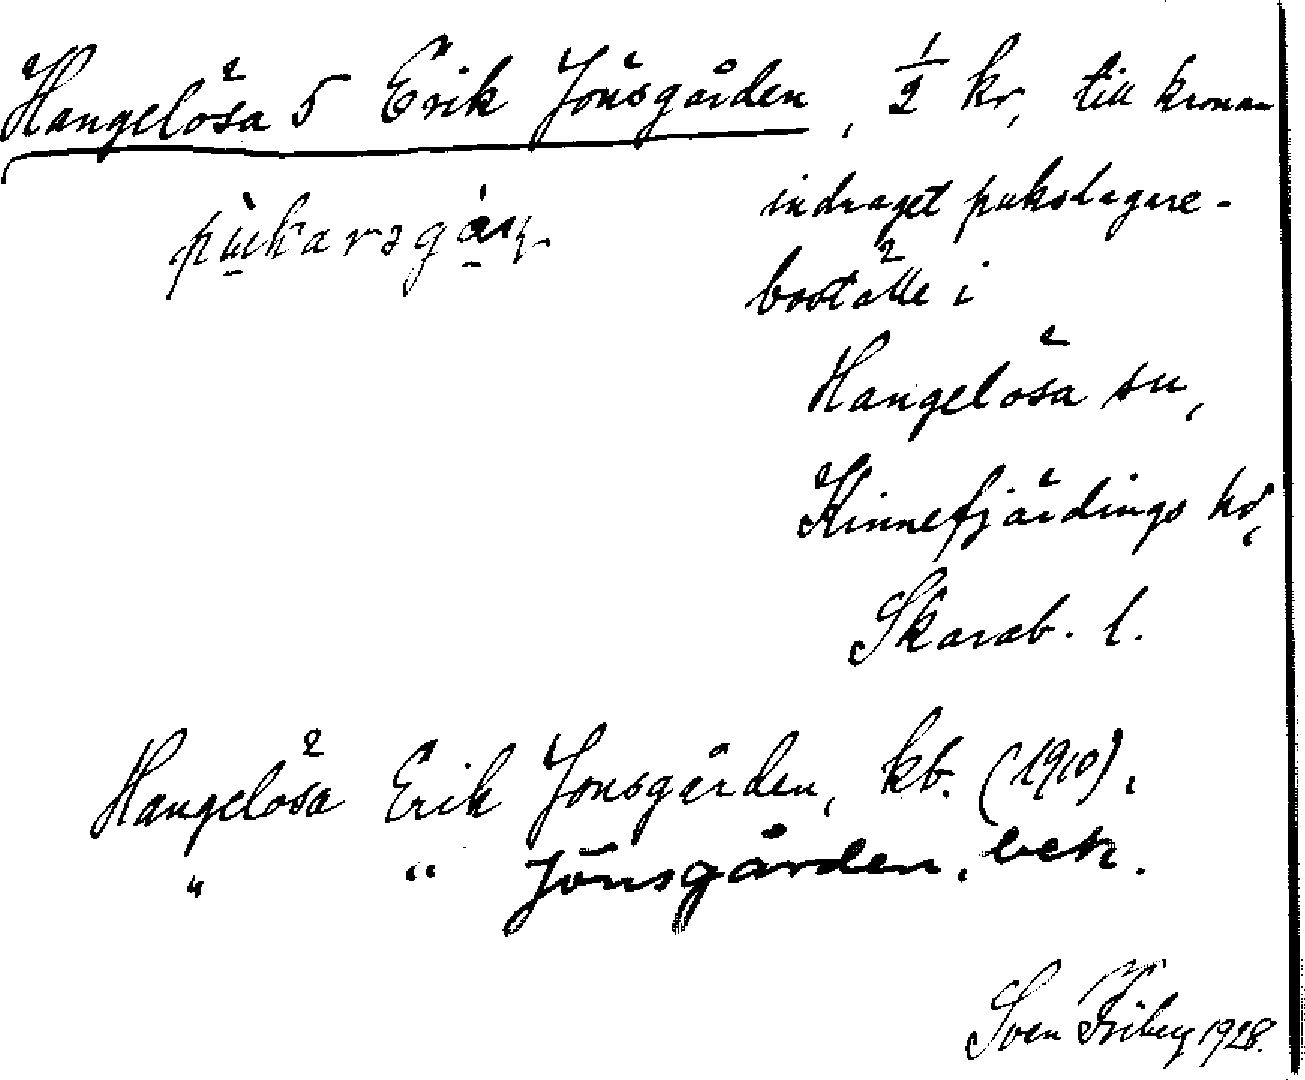 Hangelösa 5 Erik Jönsgården, 1/2 kr, till kronan
indraget pukslagare-
boställe i
Hangelösa sn,
Kinnefjärdings hd,
Skarab. l.
Hangelösa Erik Jonsgården, kb. (1910).
" " Jönsgården, bek.
Sven Friberg 1928.